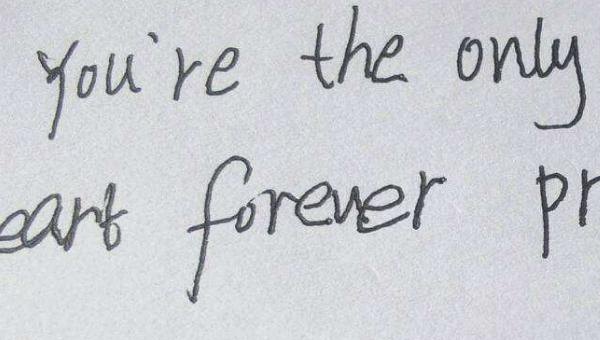 You're the only
eart forever pr